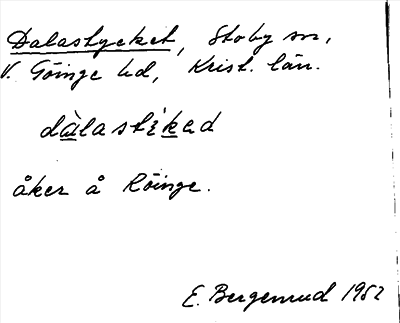 Dalastycket, Stoby sn,
V. Göinge hd, Krist. län.
dàlastìkəd
åker å Röinge.
E. Bergenrud 1952